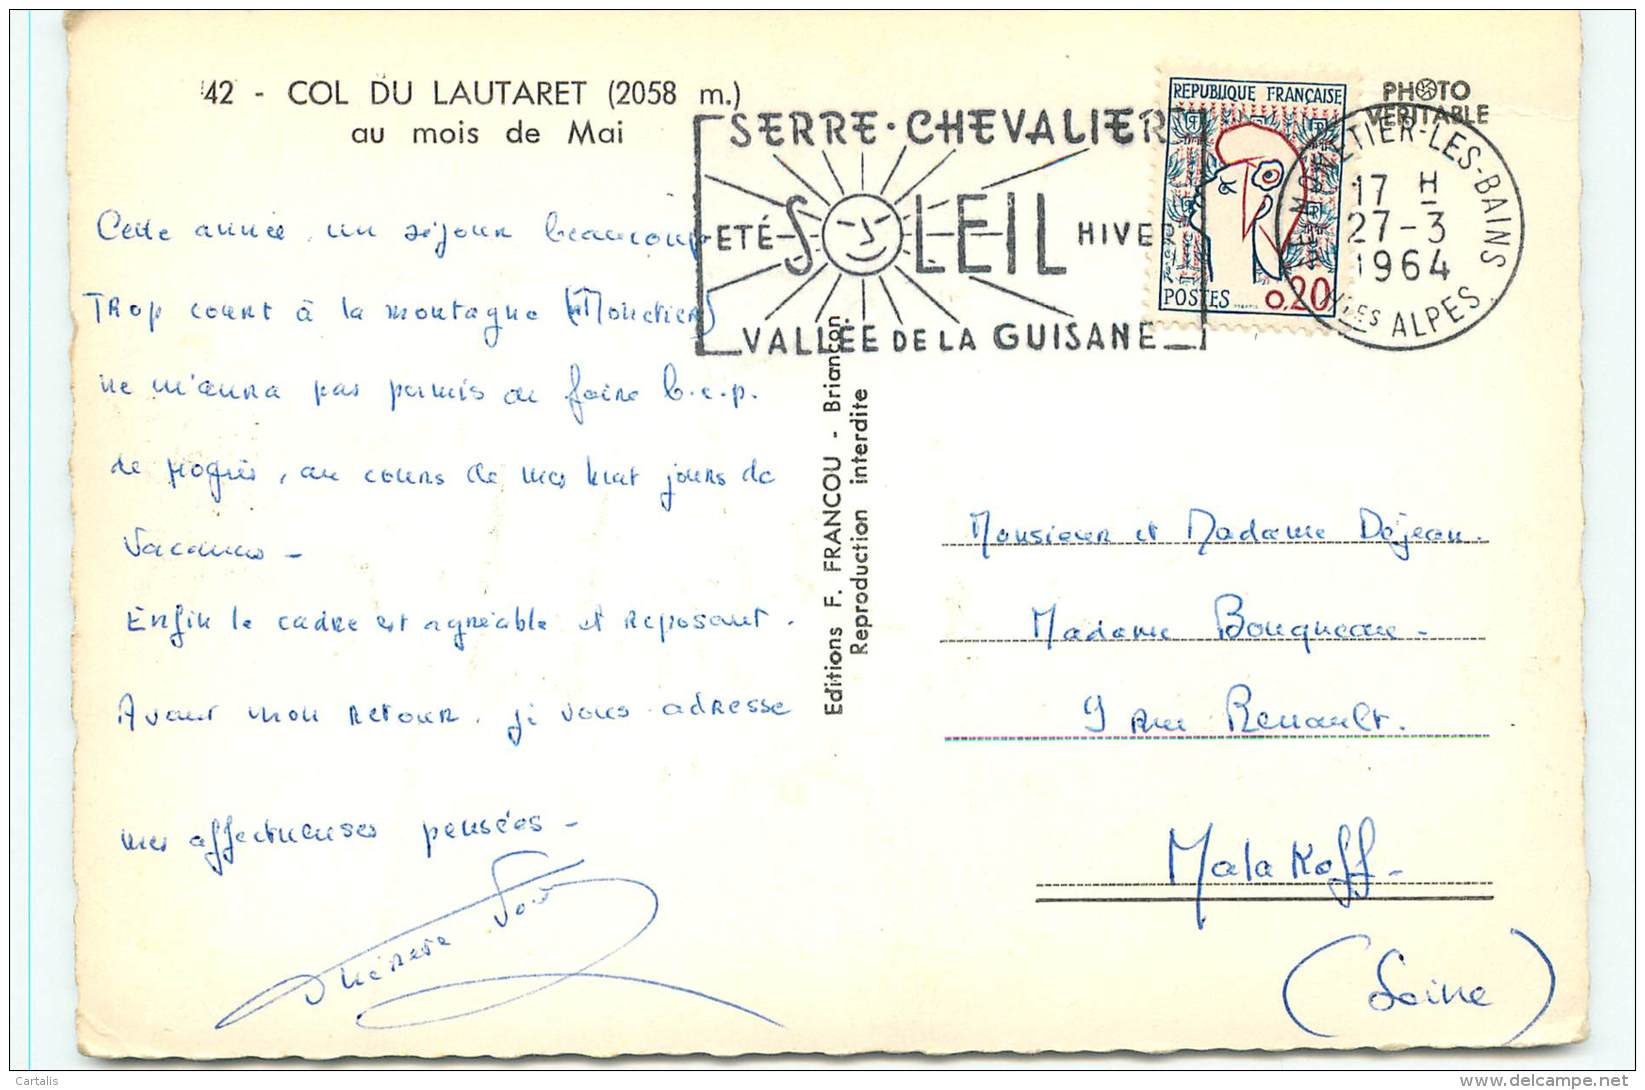 42 - COL DU LAUTARET (2058 m.)
au mois de Mai
Cette année, un séjour beaucoup
Trop court à la montagne (Monetier)
ne m'aura pas permis de faire b.c.p.
de progrès, au cours de mes huit jours de
vacances -
Enfin le cadre est agréable et reposant.
Avant mon retour, je vous adresse
mes affectueuses pensées -
Thérèse
Editions F. FRANCOU - Briançon.
Reproduction interdite
SERRE-CHEVALIER
ETÉ SOLEIL HIVER
VALLÉE DE LA GUISANE
REPUBLIQUE FRANÇAISE
POSTES 0,20
PHOTO
VERITABLE
LE MONETIER-LES-BAINS
17 H
27-3
1964
Htes ALPES
Monsieur et Madame Dejean.
Madame Bouqueau -
9 rue Renault.
Malakoff -
(Seine)
Cartalis
www.delcampe.net